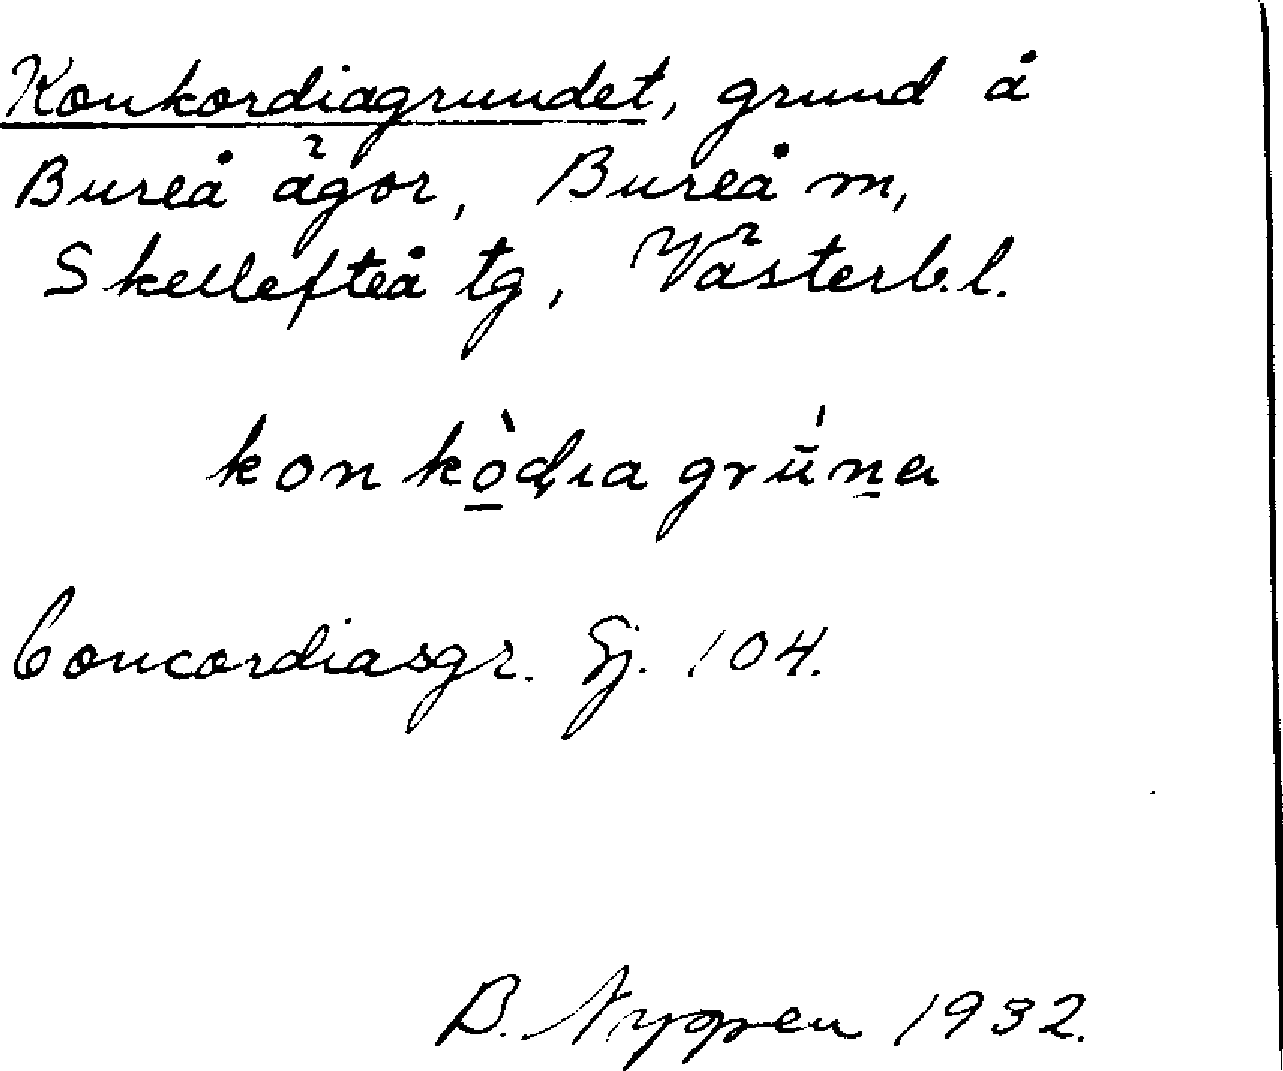 Konkordiagrundet, grund å
Bureå ägor, Bureå m,
Skellefteå tg, Västerb.l.
konkò̲ḍıa grū́n̲a
Concordiasgr. Sj. 104.
B. Nygren 1932.